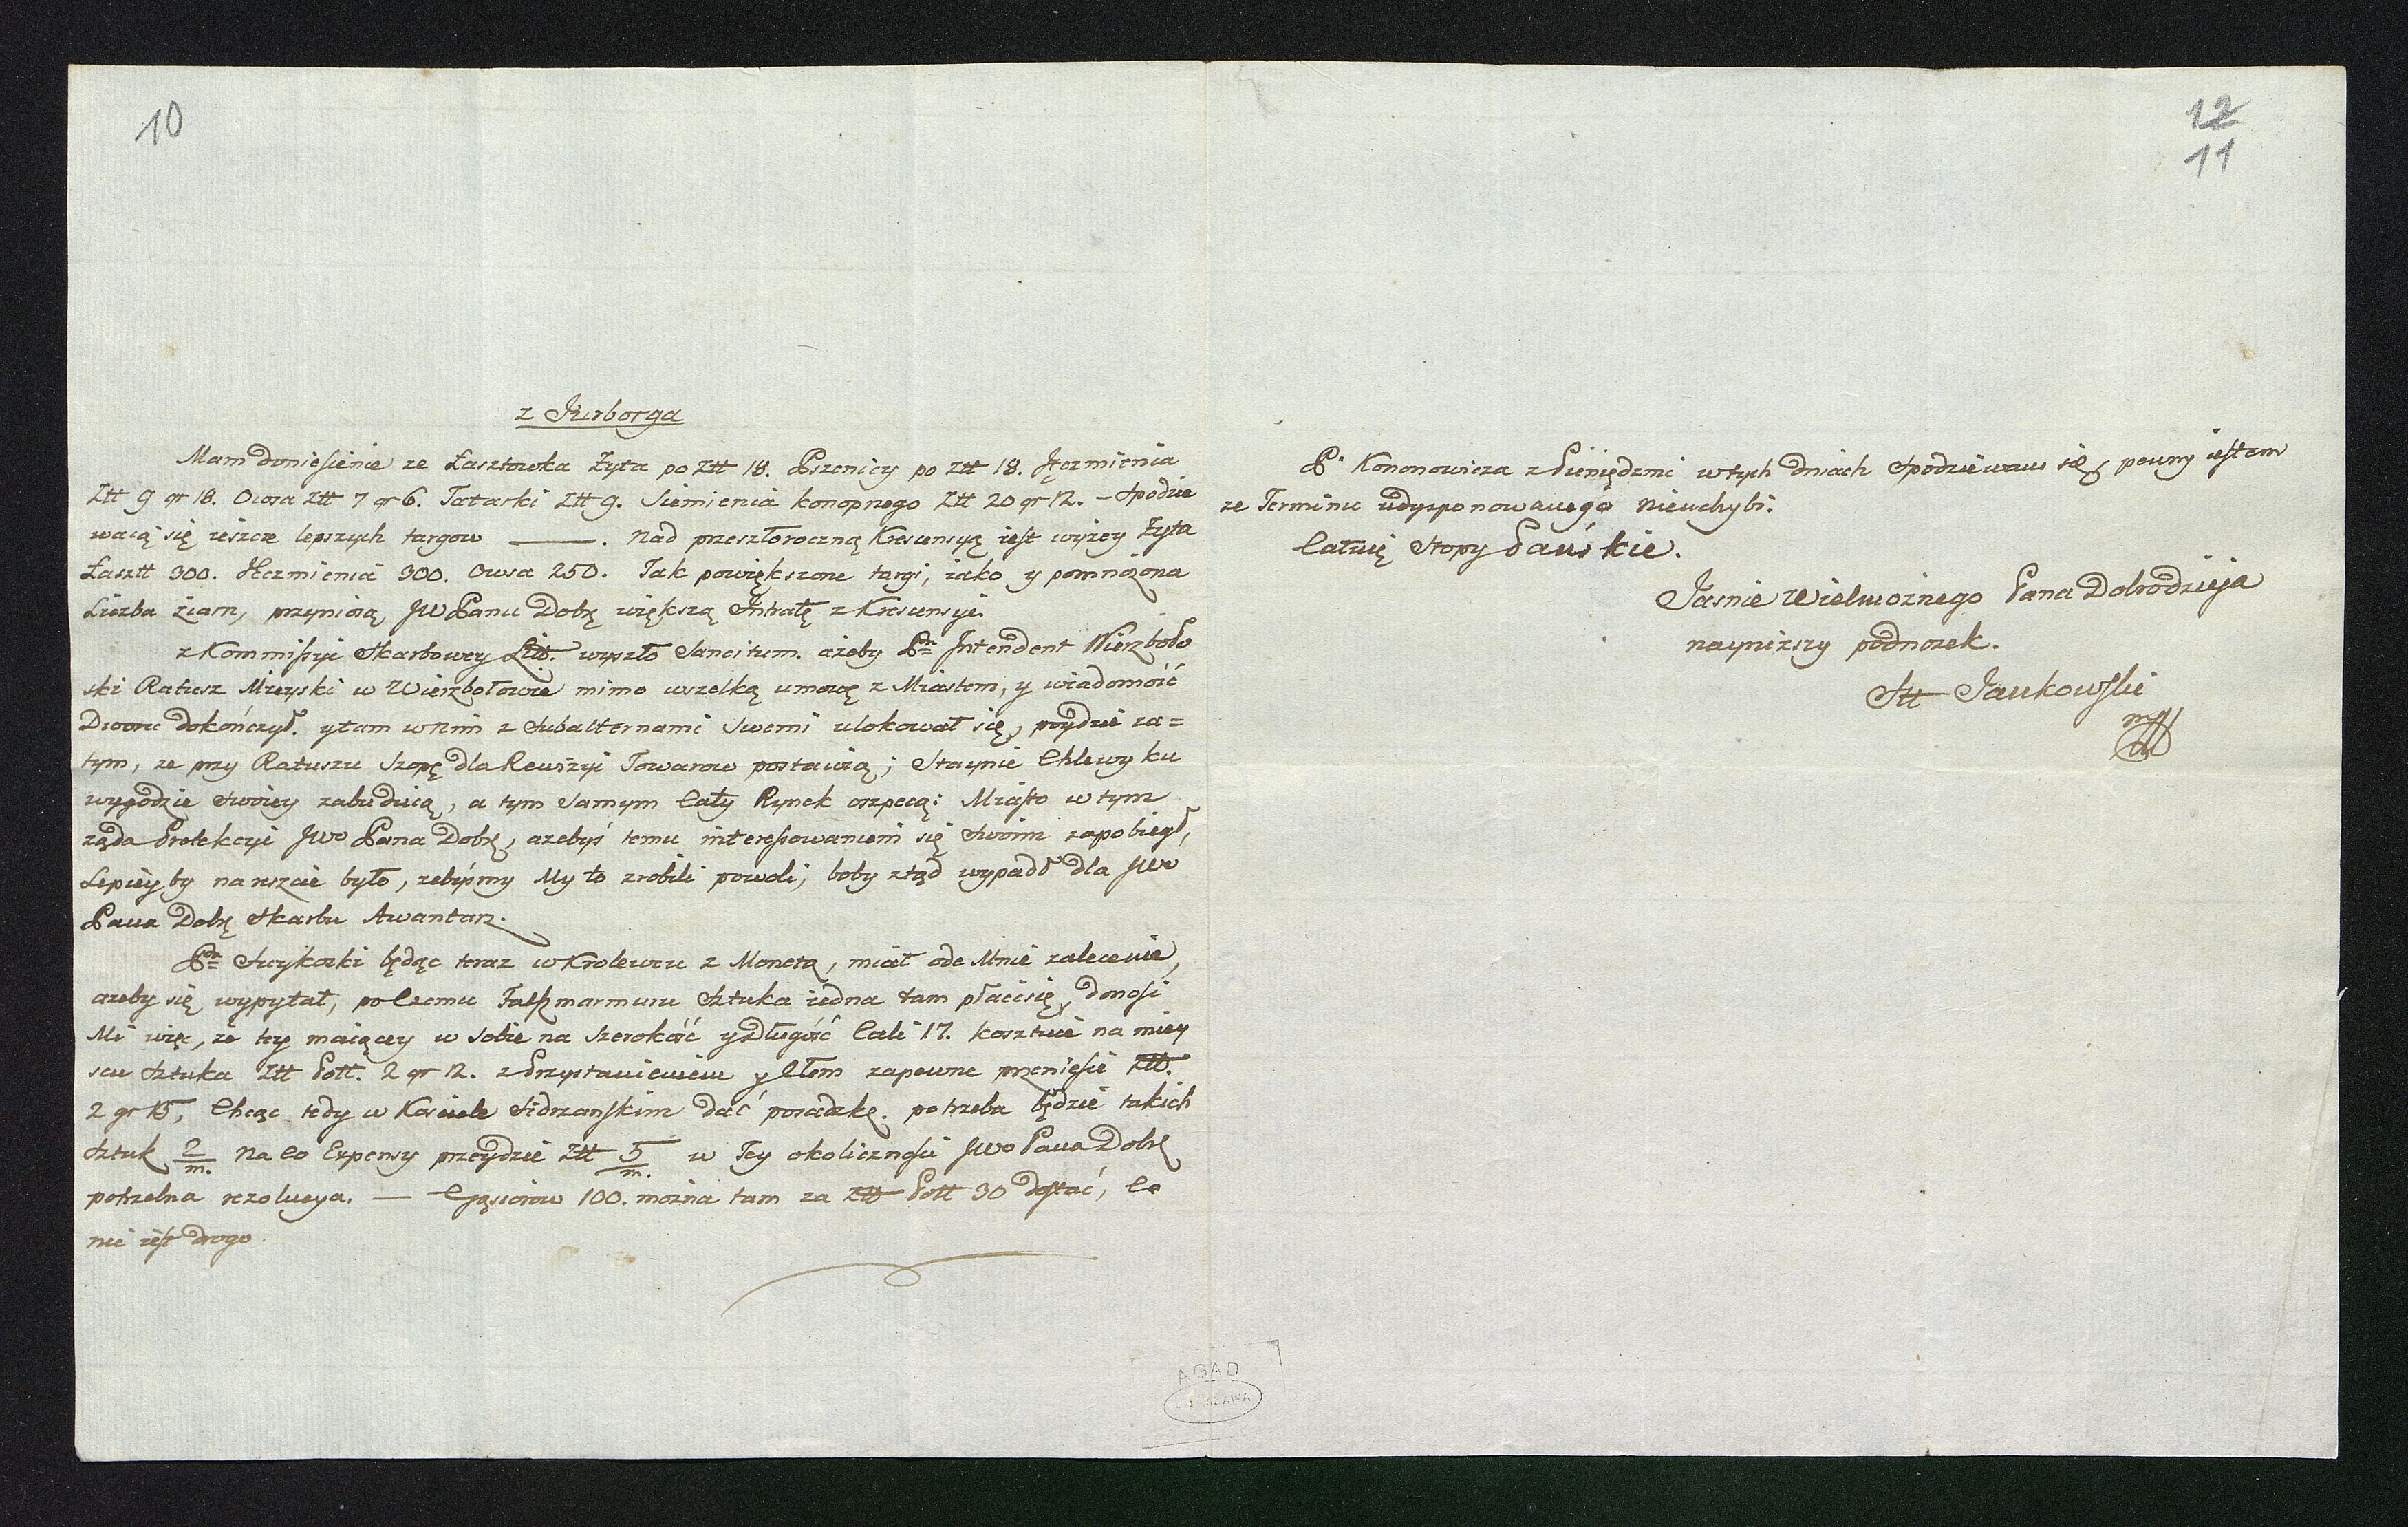 10
z Jurborga
Mam doniesienie ze Łasztowka Zyta po Ztt 18. Pszenicy po Ztt 18. Jęczmienia
Ztt 9 gr 18. Owsa Ztt 7 gr 6. Tatarki Ztt 9. Siemienia konopnego Ztt 20 gr 12. – Spodzie
waią się ieszcze lepszych targow ——. Nad przeszłoroczną Krescensyą iest wyżey Zyta
Łasztt 300. Jęczmienia 300. Owsa 250. Tak powiększone targi, iako y pomnożona
Liczba Ziarn, przyniosą JW Panu Dobę większą Intratę z Krescensyi.
z Kommissyi Skarbowey Litt. wyszło Sancitum. ażeby Pn Intendent Wierzboło
ski Ratusz Mieyski w Wierzbołowie mimo wszelką umowę z Miastem, y wiadomość
Dworu dokończył. y tam w Nim z Subalternami Swemi ulokował się, poydzie za=
tym, ze przy Ratuszu Szopę dla Rewizyi Towarow postawią; Staynie Chlewy ku
wygodzie Swoiey zabuduią, a tym samym Cały Rynek oszpecą: Miasto w tym
ząda Protekcyi JWo Pana Dobę, azebyś temu interessowaniem się Swoim zapobiegł,
Lepiey by na reszcie było, zebyśmy My to zrobili powoli; boby ztąd wypadł dla JWo
Pana Dobę Skarbu Awantaz.
Pn Swykocki będąc teraz w Krolewcu z Monetą, miał ode Mnie zalecenie,
azeby się wypytał, po Czemu Fałszmarmuru Sztuka iedna tam płaci się, donosi
Mi więc, że tey maiącey w Sobie na Szerokość y Długość Cali 17. kosztuie na miey
scu Sztuka Ztt Poll. 2 gr 12. z Przystawieniem y Cłem zapewne przeniesie Ztt.
2 gr 15, Chcąc tedy w Kosciele Sidrzanskim dać posadzkę. potrzeba będzie takich
Sztuk 2/m. Na Co Expensy przeydzie Ztt 5/m. w Tey okolicznosci JWo Pana Dobę
potrzebna rezolucya. — Gąsiorow 100. można tam za Ztt Poll 30 dostać, Co
nie iest drogo
12
11
P. Kononowicza z Pieniędzmi w tych dniach Spodziewam się, pewny iestem
ze Terminu udysponowanego nieuchybi.
Całuię Stopy Pańskie.
Jasnie Wielmożnego Pana Dobrodzieja
nayniższy podnozek.
Jankowski
mp
AGAD
WARSZAWA